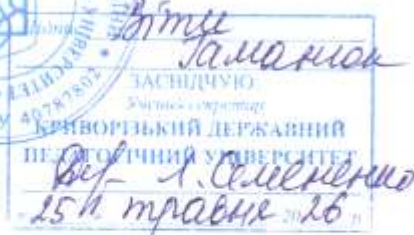 Віти
Гаманюк
ЗАСВІДЧУЮ:
Учений секретар
КРИВОРІЗЬКИЙ ДЕРЖАВНИЙ
ПЕДАГОГІЧНИЙ УНІВЕРСИТЕТ
Л. Семененко
25 травня 2026 р.
40787802